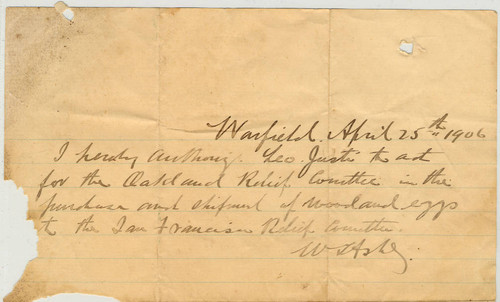 Warfield, April 25th 1906
I hereby Authorize Geo. Justi to act
for the Oakland Relief Comttee in the
purchase and shipment of wood and eggs
to the San Francisco Relief Comttee.